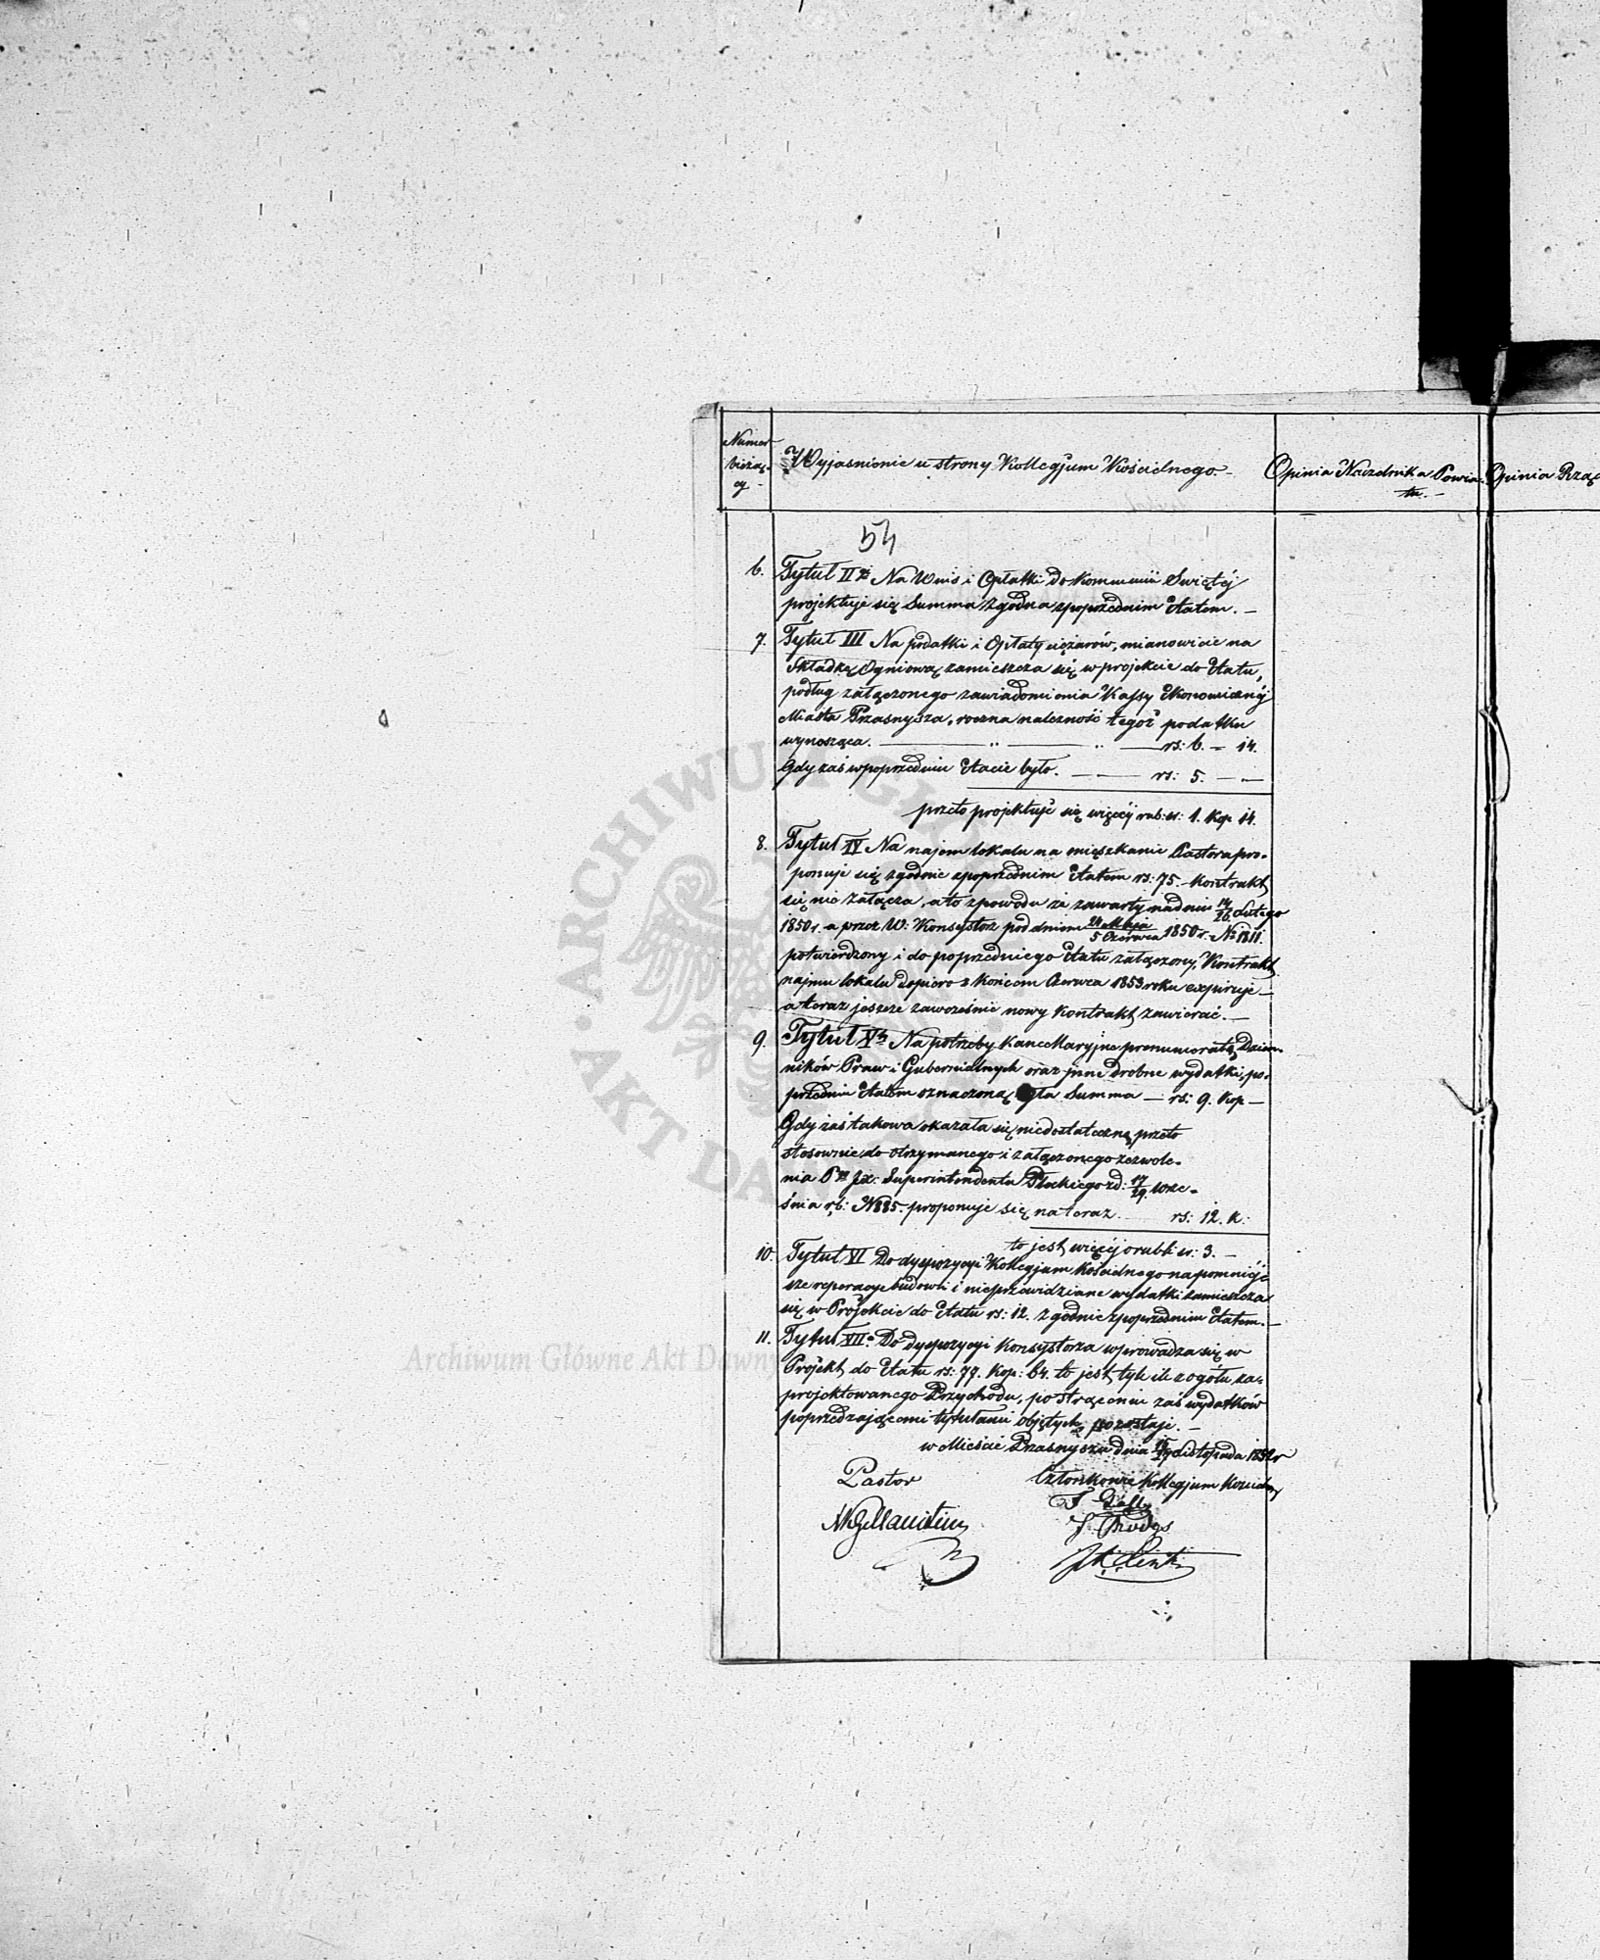 Numer
bieżą-
cy
Wyjasnienie u strony Kollegjum Kościelnego.
Opinia Naczelnika Powia-
tu.
Opinia Rzą
54
6. Tytuł II Na Wino i Opłatki do Kommunii Swiętéj
projektuje się Summa zgodna z poprzednim Etatem. —
7. Tytuł III Na podatki i Opłaty ciężarów, mianowicie na
Składkę Ogniową zamieszcza się w projekcie do Etatu,
podług załączonego zawiadomienia Kassy Ekonomicznéj
Miasta Przasnysza, roczna należność tegoż podatku
wynosząca. — „ — „ — rs: 6. — 14.
Gdy zaś w poprzednim Etacie było. — — rs: 5. — —
przeto projektuje się więcéj rub: sr: 1. Kop 14.
8. Tytuł IV Na najem lokalu na mieszkanie Pastora pro-
ponuje się zgodnie z poprzednim Etatem rs: 75. — Kontrakt
się nie załącza, a to z powodu że zawarty na dniu 14/26 Lutego
1850 r. a przez W: Konsystorz pod dniem 24 Maja/5 Czerwca 1850 r. No 1811.
potwierdzony i do poprzedniego Etatu załączony, Kontrakt
najmu lokalu dopiero z końcem Czerwca 1853 roku expiruje —
a teraz jeszcze zawcześnie nowy Kontrakt zawierać. —
9. Tytuł V Na potrzeby Kancellaryjne prenumeratę Dzien-
ników Praw i Gubernialnych oraz inne drobne wydatki, po-
przednim Etatem oznaczoną była Summa — rs: 9. Kop —
Gdy zaś takowa okazała się niedostateczną, przeto
stosownie do otrzymanego i załączonego zezwole-
nia Superintendenta Płockiego z d: 17/29 Wrze-
śnia r.b: N 885. proponuje się na teraz. rs: 12. k:
to jest więcéj o rubli sr: 3. —
10. Tytuł VI Do dyspozycyi Kollegjum Kościelnego na pomniéj-
sze reperacye budowli i nieprzewidziane wydatki zamieszcza
się w Projekcie do Etatu rs: 12. zgodnie z poprzednim Etatem. —
11. Tytuł VII. Do dyspozycyi Konsystorza wprowadza się w
Projekt do Etatu rs: 77. Kop: 64. to jest tyle ile z ogółu za-
projektowanego Przychodu, po strąceniu zaś wydatków
poprzedzającemi tytułami objętych, pozostaje. —
w Mieście Przasnyszu dnia Listopada 1852 r
Pastor
Członkowie Kollegjum
Archiwum Główne Akt Dawny
ARCHIWUM
AKT DAW